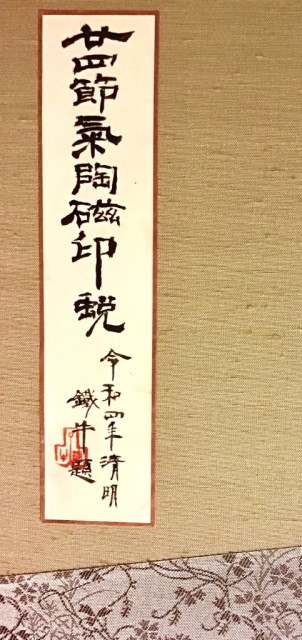 廿四節氣陶磁印蛻
令和四年清明
鐵牛題